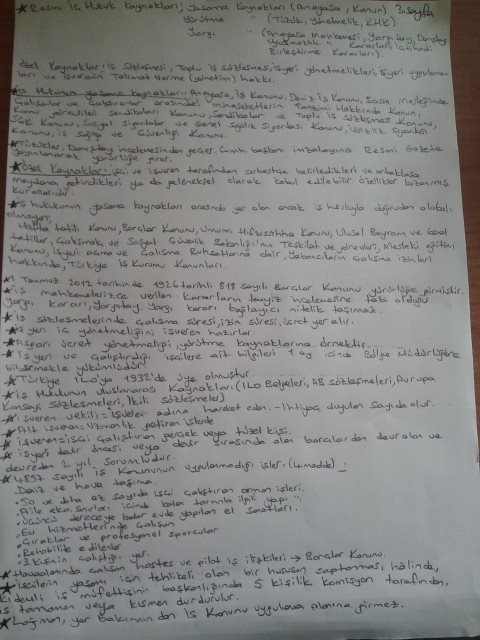 ★ Resmi iç Hukuk kaynakları; Yasama Kaynakları (Anayasa, Kanun) 3. sayfa
Yürütme " (Tüzük, Yönetmelik, KHK)
Yargı " (Anayasa Mahkemesi, Yargıtay, Danıştay
Uyuşmazlık " Kararları, içtihadı
Birleştirme Kararları).
Özel Kaynaklar: iş sözleşmesi, Toplu iş sözleşmesi, işyeri yönetmelikleri, işyeri uygulama-
ları ve işverenin Talimat Verme (yönetim) hakkı.
★ iş Hukukunun yasama kaynakları: Anayasa, iş Kanunu, Deniz iş Kanunu, Basın Mesleğinde
Çalışanlar ve Çalıştıranlar arasındaki münasebetlerin Tanzimi Hakkında Kanun,
Kamu görevlileri Sendikaları Kanunu, Sendikalar ve Toplu iş Sözleşmesi Kanunu,
SGK Kanunu, Sosyal sigortalar ve Genel sağlık sigortası Kanunu, işsizlik sigortası
Kanunu, iş sağlığı ve Güvenliği Kanunu
★ Tüzükler, Danıştay incelemesinden geçer. Cumhurbaşkanı imzalayınca Resmi Gazete
yayınlanarak yürürlüğe girer.
★ Özel Kaynaklar: işçi ve işveren tarafından serbestçe belirledikleri ve ortaklaşa
meydana getirdikleri ya da geleneksel olarak kabul edilebilir özellikler kazanmış
kurallarıdır.
★ iş hukukunun yasama kaynakları arasında yer alan ancak iş hukukuyla doğrudan alakalı
olmayan;
Hafta tatili Kanunu, Borçlar Kanunu, Umumi Hıfzıssıhha Kanunu, Ulusal Bayram ve Genel
tatiller, Çalışmak ve Sosyal Güvenlik Bakanlığı'nın Teşkilat ve görevleri, Mesleki eğitim
Kanunu, işyeri açma ve Çalışma Ruhsatlarına dair, Yabancıların Çalışma izinleri
hakkında, Türkiye iş Kurumu Kanunları.
★ 1 Temmuz 2012 tarihinde 1926 tarihli 818 sayılı Borçlar Kanunu yürürlüğe girmiştir.
★ iş mahkemelerince verilen kararların temyiz incelemesine tabi olduğu
yargı kararı, yargıtay. Yargı kararı bağlayıcı nitelik taşımaz.
★ iş sözleşmelerinde çalışma süresi, izin süresi, ücret yer alır.
★ işyeri iç yönetmeliğini işveren hazırlar.
★ Asgari ücret yönetmeliği, yürütme kaynaklarına örnektir.
★ iş yeri ve çalıştırdığı işçilere ait bilgileri 1 ay içinde Bölge Müdürlüğüne
bildirmekle yükümlüdür.
★ Türkiye ILO'ya 1932'de üye olmuştur
★ iş Hukukunun Uluslararası Kaynakları (ILO Belgeleri, AB sözleşmeleri, Avrupa
Konseyi Sözleşmeleri, ikili sözleşmeler)
★ işveren vekili = işveren adına hareket eden. - ihtiyaç duyulan sayıda olur.
★ Alt işveren: Uzmanlık gerektiren işlerde
★ işveren: işçi çalıştıran gerçek veya tüzel kişi.
★ işyeri devir öncesi veya devir sırasında olan borçlardan devralan ve
devreden 2 yıl sorumludur.
★ 4857 sayılı iş Kanununun uygulanmadığı işler. (4. madde) !
. Deniz ve hava taşıma.
. 50 ve daha az sayıda işçi çalıştıran orman işleri.
. Aile eko. sınırları içinde kalan tarımla ilgili yapı "
. Üçüncü dereceye kadar evde yapılan el sanatları.
. Ev hizmetlerinde çalışan
. Çıraklar ve profesyonel sporcular
. Rehabilite edilenler
. 3 kişinin çalıştığı yer.
★ Havaalanında çalışan hostes ve pilot iş ilişkileri → Borçlar Kanunu.
★ işçilerin yaşamı için tehlikeli olan bir hususun saptanması halinde,
kıdemli iş müfettişinin başkanlığında 5 kişilik komisyon tarafından,
iş tamamen veya kısmen durdurulur.
yer bakımından iş Kanunu uygulama alanına girmez.